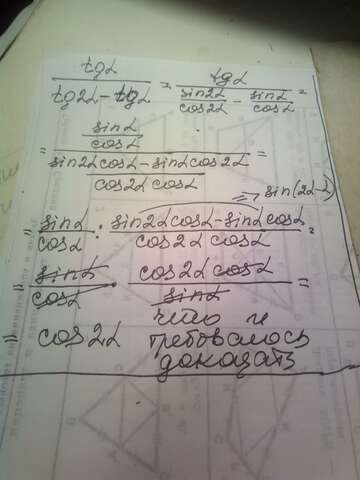 tgα / (tg2α - tgα) = tgα / (sin2α/cos2α - sinα/cosα) =
= (sinα/cosα) / ((sin2α cosα - sinα cos2α) / (cos2α cosα)) =
=> sin(2α-α)
= sinα/cosα : (sin2α cosα - sinα cosα) / (cos2α cosα) =
= sinα/cosα · (cos2α cosα) / sinα =
= cos2α что и
требовалось
доказать